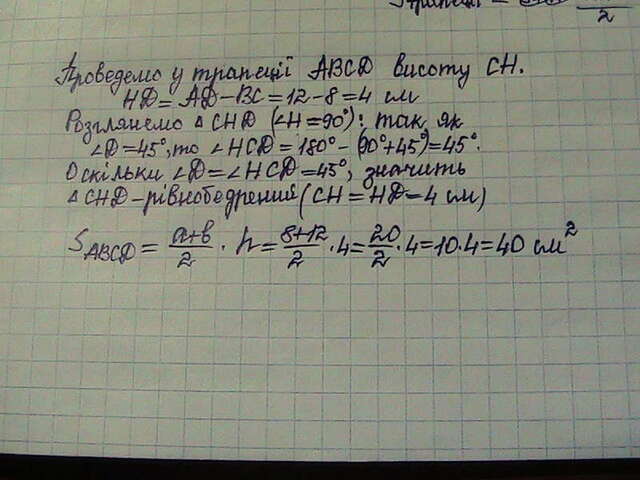 трапеції =
2
Проведемо у трапеції ABCD висоту CH.
HD = AD – BC = 12 – 8 = 4 см
Розглянемо △ CHD (∠H = 90°): так як
∠D = 45°, то ∠HCD = 180° – (90° + 45°) = 45°.
Оскільки ∠D = ∠HCD = 45°, значить
△CHD – рівнобедрений (CH = HD = 4 см)
S_ABCD = (a+b)/2 · h = (8+12)/2 · 4 = 20/2 · 4 = 10 · 4 = 40 см²